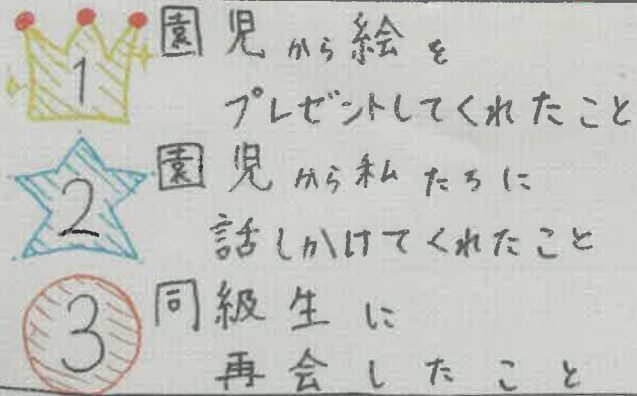 1 園児から絵を
プレゼントしてくれたこと
2 園児から私たちに
話しかけてくれたこと
3 同級生に
再会したこと